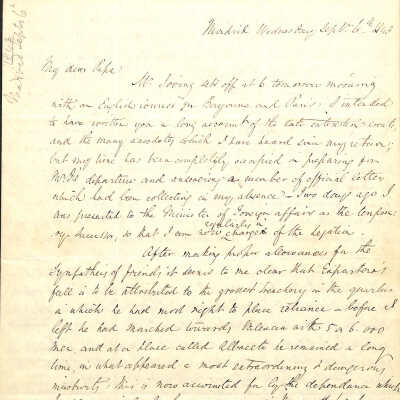 Madrid Wednesday Septr. 6th 1843
My dear Papa
Mr. Irving sets off at 6 tomorrow morning
with an English courier for Bayonne and Paris. I intended
to have written you a long account of the late events,
and the many anecdotes which I have heard since my return;
but my time has been completely occupied in preparing for
departure and answering a number of official letters
which had been collecting in my absence - Two days ago I
was presented to the Minister of Foreign affairs as the temporary
successor, so that I am now regularly in charge of the legation.
After making proper allowances for the
sympathies of friends it seems to me clear that Espartero's
fall is to be attributed to the grossest treachery in the quarters
in which he had most right to place reliance - before I
left he had marched towards Valencia with 5 or 6.000
men and at a place called Albacete he remained a long
time, in what appeared a most extraordinary & dangerous
inactivity. This is now accounted for by the dependance which
Madrid Septr 6th